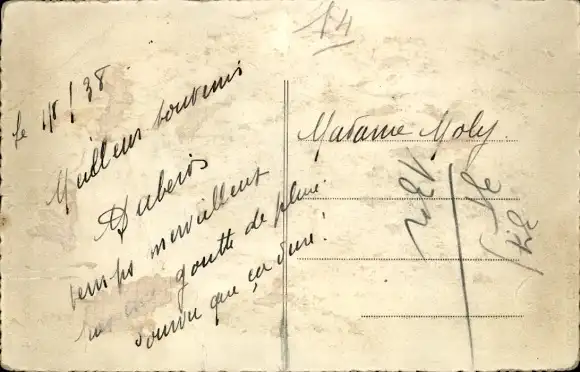 14
Le 1/8/38
Meilleurs souvenirs
temps merveilleux
pas une goutte de pluie.
pourvu que ça dure!
Madame Moly.